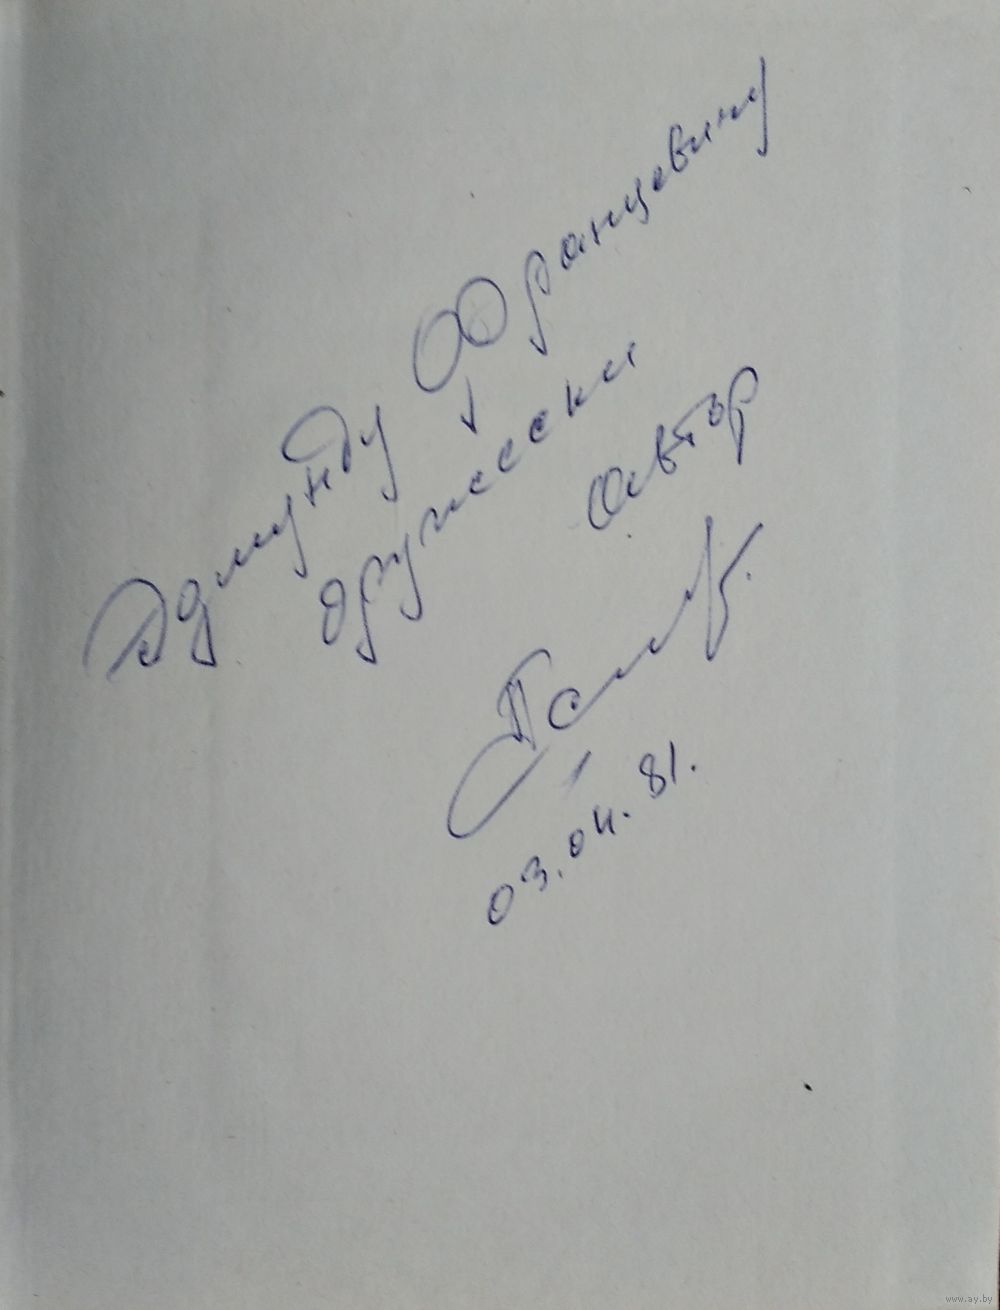 Эдмунду Францевичу
дружески
Автор
03.04.81.
www.ay.by